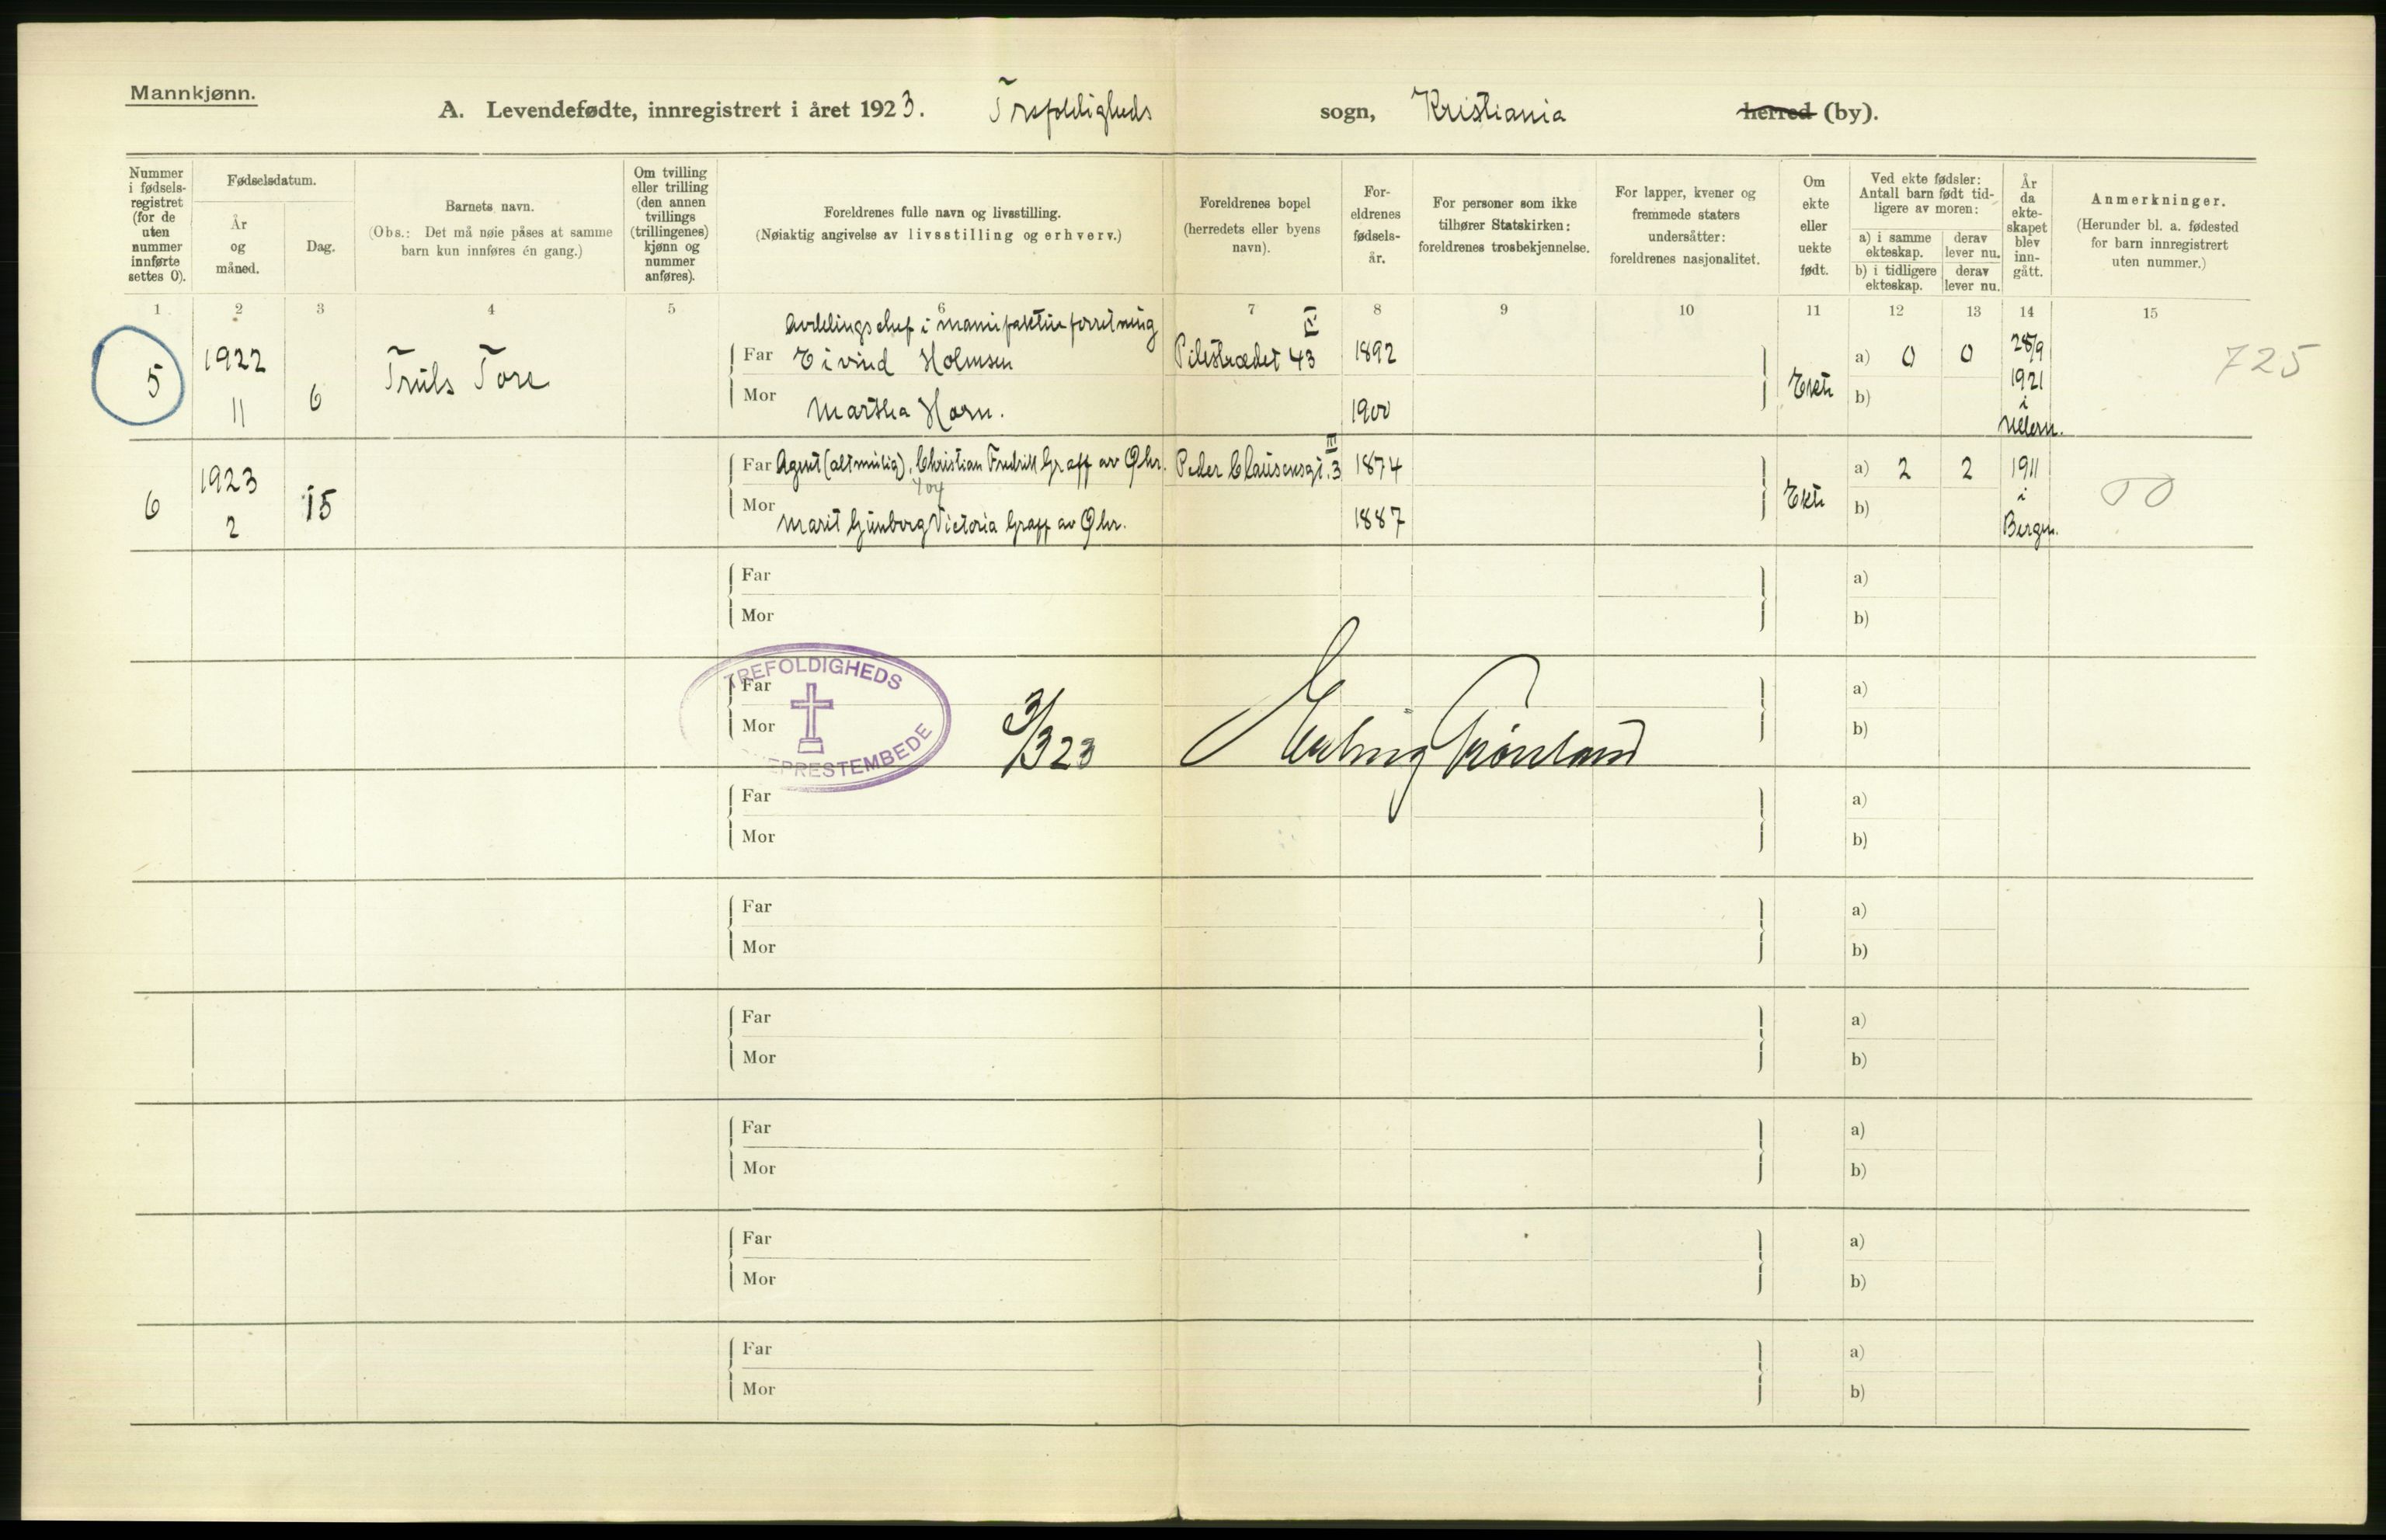 Mannkjønn.
A. Levendefødte, innregistrert i året 1923. Trefoldigheds sogn, Kristiania herred (by).
Nummer i fødsels-registret (for de uten nummer innførte settes 0).
Fødselsdatum.
År og måned.
Dag.
Barnets navn.
(Obs.: Det må nøie påses at samme barn kun innføres én gang.)
Om tvilling eller trilling (den annen tvillings (trillingenes) kjønn og nummer anføres).
Foreldrenes fulle navn og livsstilling.
(Nøiaktig angivelse av livsstilling og erhverv.)
Foreldrenes bopel (herredets eller byens navn).
For-eldrenes fødsels-år.
For personer som ikke tilhører Statskirken: foreldrenes trosbekjennelse.
For lapper, kvener og fremmede staters undersåtter: foreldrenes nasjonalitet.
Om ekte eller uekte født.
Ved ekte fødsler: Antall barn født tid-ligere av moren:
a) i samme ekteskap.
derav lever nu.
b) i tidligere ekteskap.
derav lever nu.
År da ekte-skapet blev inn-gått.
Anmerkninger.
(Herunder bl. a. fødested for barn innregistrert uten nummer.)
1 2 3 4 5 6 7 8 9 10 11 12 13 14 15
Avdelingschef i manufakturforretning
5 1922 11 6 Truls Tore
Far Eivind Holmsen Pilestrædet 43 IV 1892
Mor Martha Horn. 1900
Ekte a) 0 0 28/9 1921 i Ullern.
b)
725
6 1923 2 15
Far Agent (altmulig), Christian Fredrik Graff av Ohr. Peder Clausensgt. 3 III 1874
404
Mor Marit Gunborg Victoria Graff av Ohr. 1887
Ekte a) 2 2 1911 i Bergen.
b)
00
Far a)
Mor b)
TREFOLDIGHEDS
Far a)
Mor 3/3 23 Erling Grønland b)
EPRESTEMBEDE
Far a)
Mor b)
Far a)
Mor b)
Far a)
Mor b)
Far a)
Mor b)
Far a)
Mor b)
Far a)
Mor b)